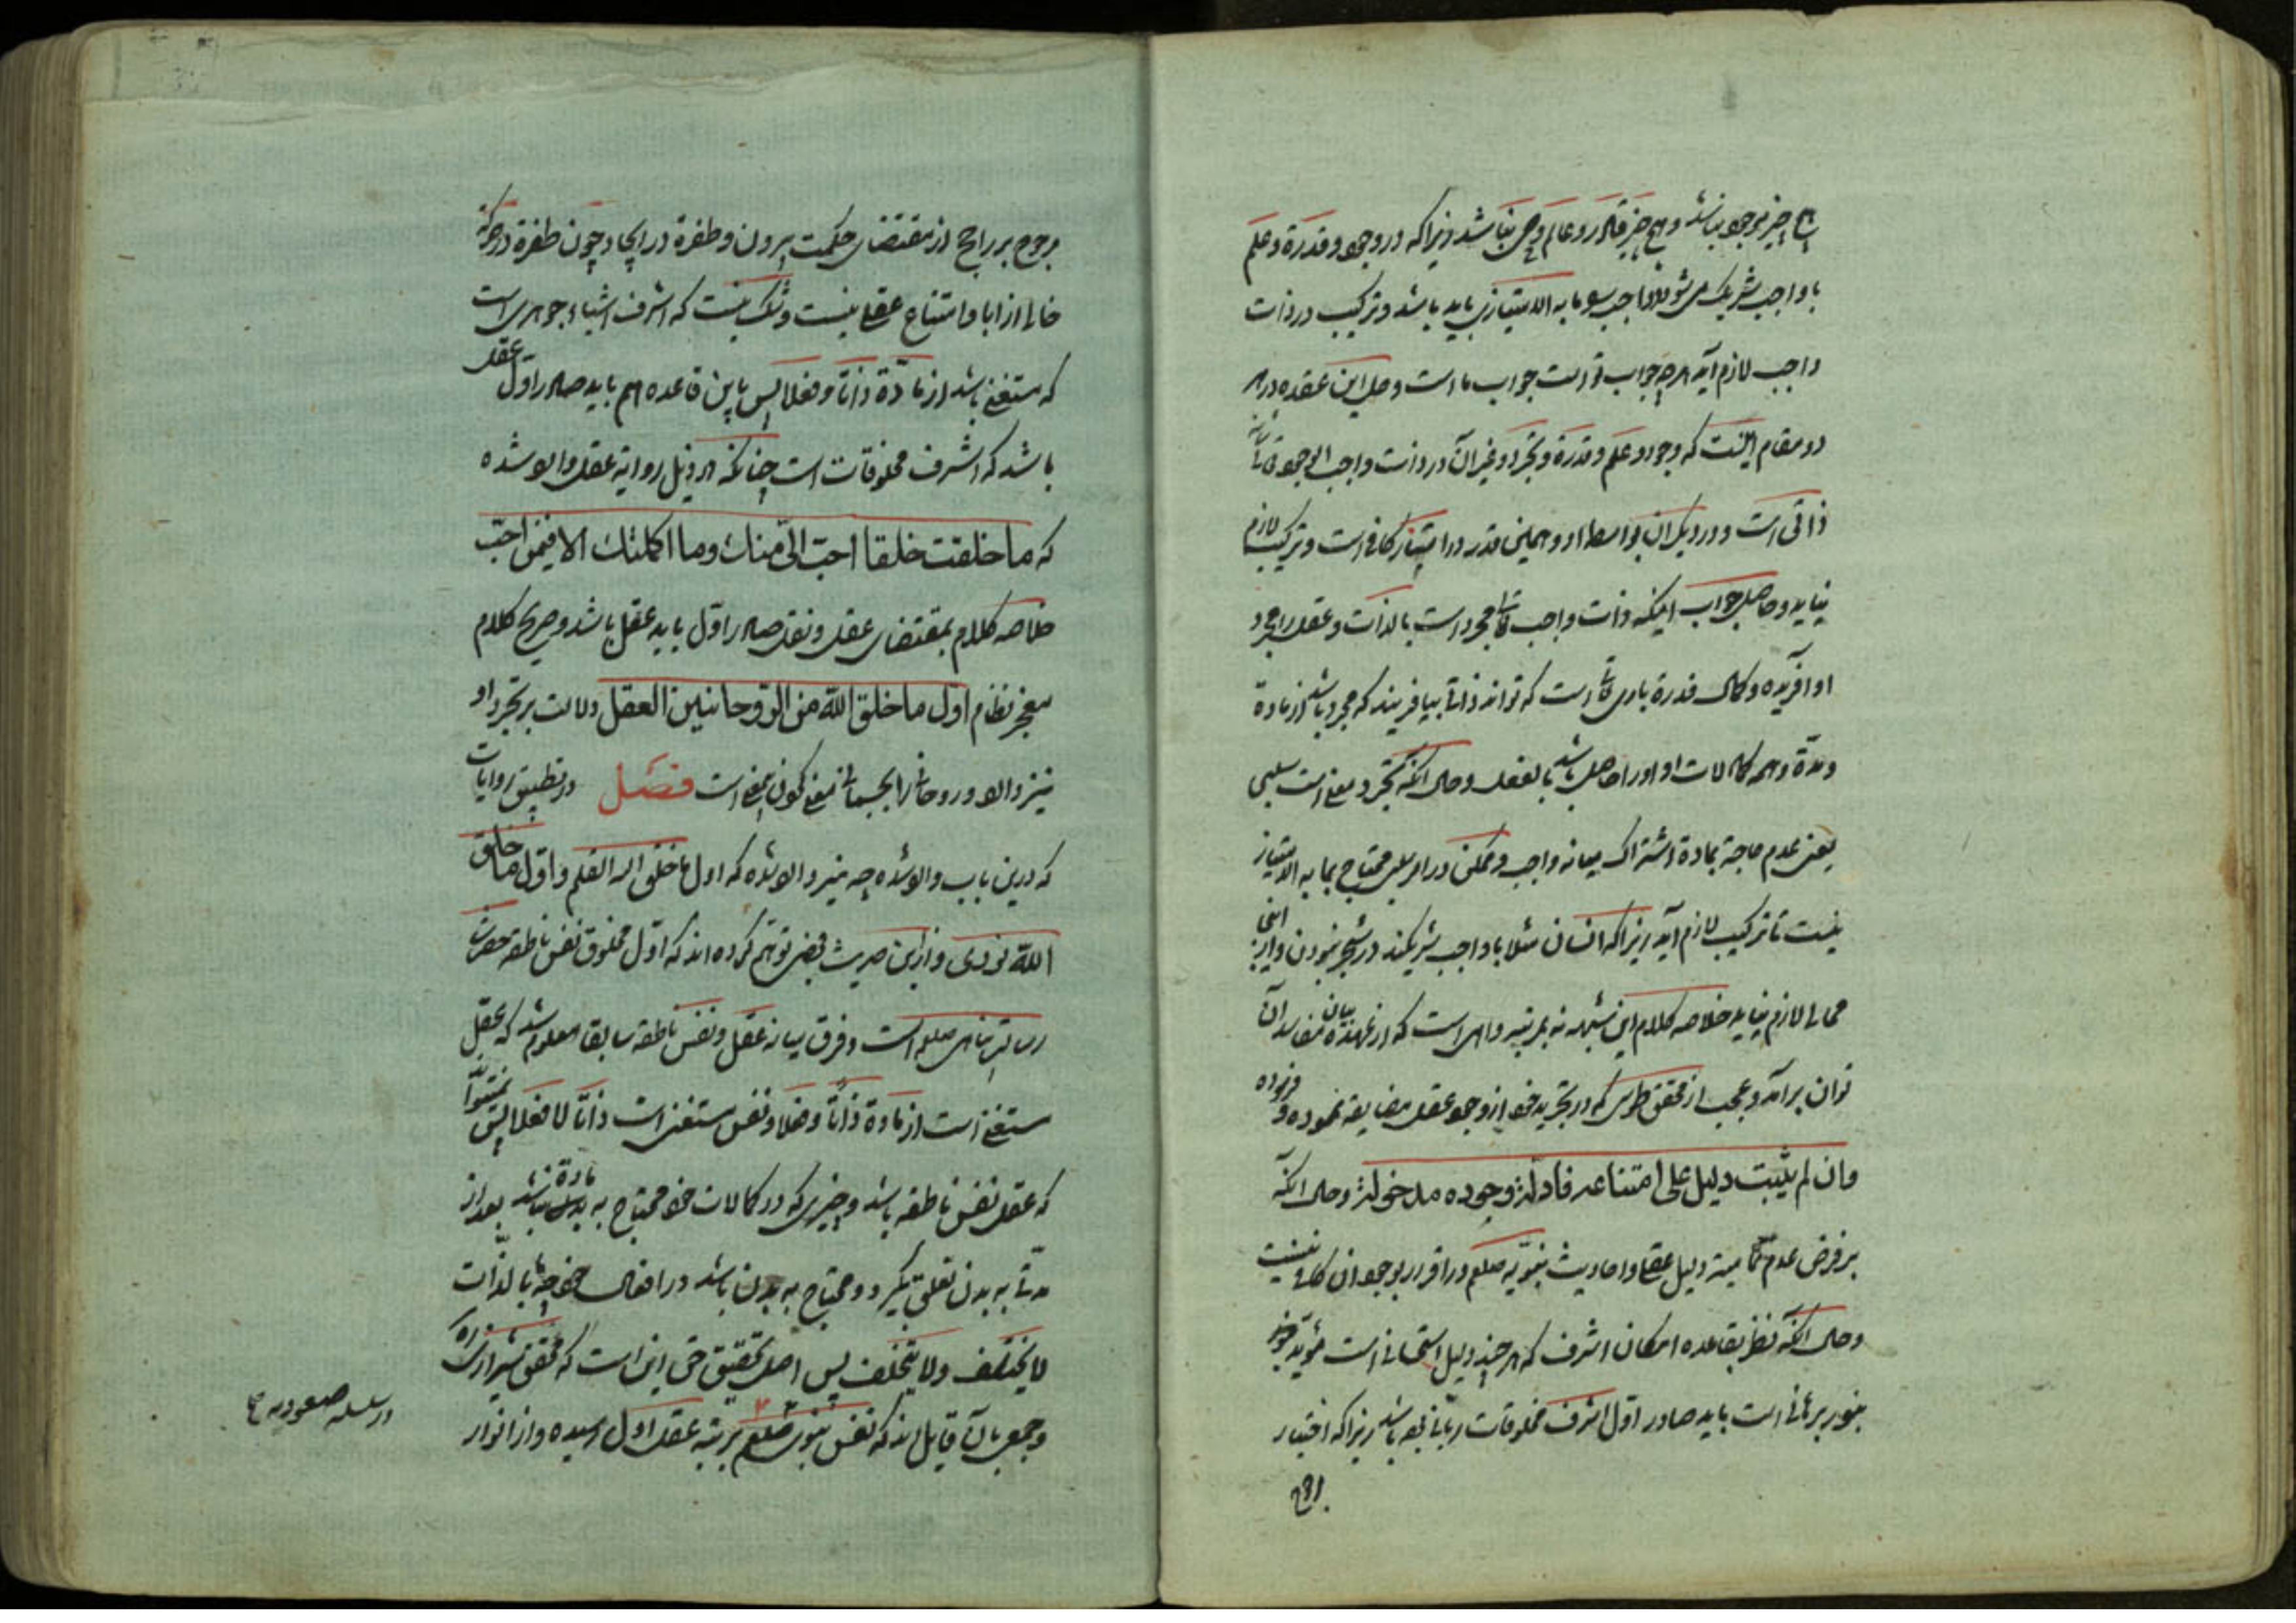 هیچ چیز موجود نباشد و هیچ چیز قادر و عالم و حی نباشد زیرا که در وجود و قدرة و علم
با واجب شریک می شود و واجب را ما به الامتیازی باید باشد و ترکیب در ذات
واجب لازم آید هر چه جواب تو است جواب ما است و حل این عقده در هر
دو مقام اینست که وجود و علم و قدرة و تجرد و غیر آن در ذات واجب الوجود تعالی شانه
ذاتی است و در دیگران بواسطه او و همین قدر در امتیاز کافی است و ترکیب لازم
نیاید و حاصل جواب اینکه ذات واجب تعالی مجرد است بالذات و عقل را مجرد
او آفریده و کمال قدرة باری تعالی است که تواند ذاتی بیافریند که مجرد باشد از مادة
و مدة و همه کمالات او او را حاصل باشد بالفعل و حال آنکه تجرد معنی است سلبی
یعنی عدم حاجة بمادة اشتراک میانه واجب و ممکن در امر سلبی محتاج بما به الامتیاز
نیست تا ترکیب لازم آید زیرا که انسان مثلا با واجب شریکند در شجر نبودن و از اینجا
محالی لازم نیاید خلاصه کلام این شبهه نه بمرتبه واهی است که از عهده بیان مفاسد آن
توان برآمد و عجب از محقق طوسی که در تجرید خود از وجود عقل مضایقه نموده و فرموده
وان لم یثبت دلیل علی امتناعه فادلة وجوده مدخولة و حال آنکه
بر فرض عدم تمامیة دلیل عقلی احادیث نبویه صلعم در اقرار بوجود آن کافی نیست
و حال آنکه نظر بقاعده امکان اشرف که هر چند دلیل استحسانی است مؤید
بنور برهانی است باید صادر اول اشرف مخلوقات ربانی بوده باشد زیرا که اختیار
مرجوح بر راجح از مقتضای حکمت بیرون و طفرة در ایجاد چون طفرة در حرکة
خالی از ابا و امتناع عقلی نیست و شک نیست که اشرف اشیاء جوهری است
که مستغنی باشد از مادّة ذاتا و فعلا پس باین قاعده هم باید صادر اول عقل
باشد که اشرف مخلوقات است چنانکه در ذیل روایة عقل وارد شده
که ما خلقت خلقا احبّ الیّ منک وما اکملتک الا فیمن احبّ
خلاصه کلام بمقتضای عقل و نقل صادر اوّل باید عقل باشد و صریح کلام
معجز نظام اوّل ما خلق الله من الروحانیین العقل دلالت بر تجرد او
نیز دارد و روحانی را بجسمانی معنی کردن بی معنی است فصل در تطبیق روایات
که درین باب وارد شده چه نیز وارد شده که اول ما خلق الله القلم و اوّل ما خلق
الله نوری و از این حدیث بعضی توهّم کرده اند که اوّل مخلوق نفس ناطقه حضرت
رسالتپناهی صلعم است و فرق میانه عقل و نفس ناطقه سابقا معلوم شد که عقل
مستغنی است از مادة ذاتا و فعلا و نفس مستغنی است ذاتا لا فعلا پس نمیتواند
که عقل نفس ناطقه باشد و چیزی که در کمالات خود محتاج به مادة نباشد بعد از
مدتی به بدن تعلق نگیرد و محتاج به بدن باشد در افعال خود چه ما بالذات
لا یختلف ولا یتخلف پس اصل تحقیق حق این است که محقق شیرازی ره
و جمعی بآن قایل اند که نفس نبوی صلعم بمرتبه عقل اول رسیده و از انوار
در سلسله صعودیه